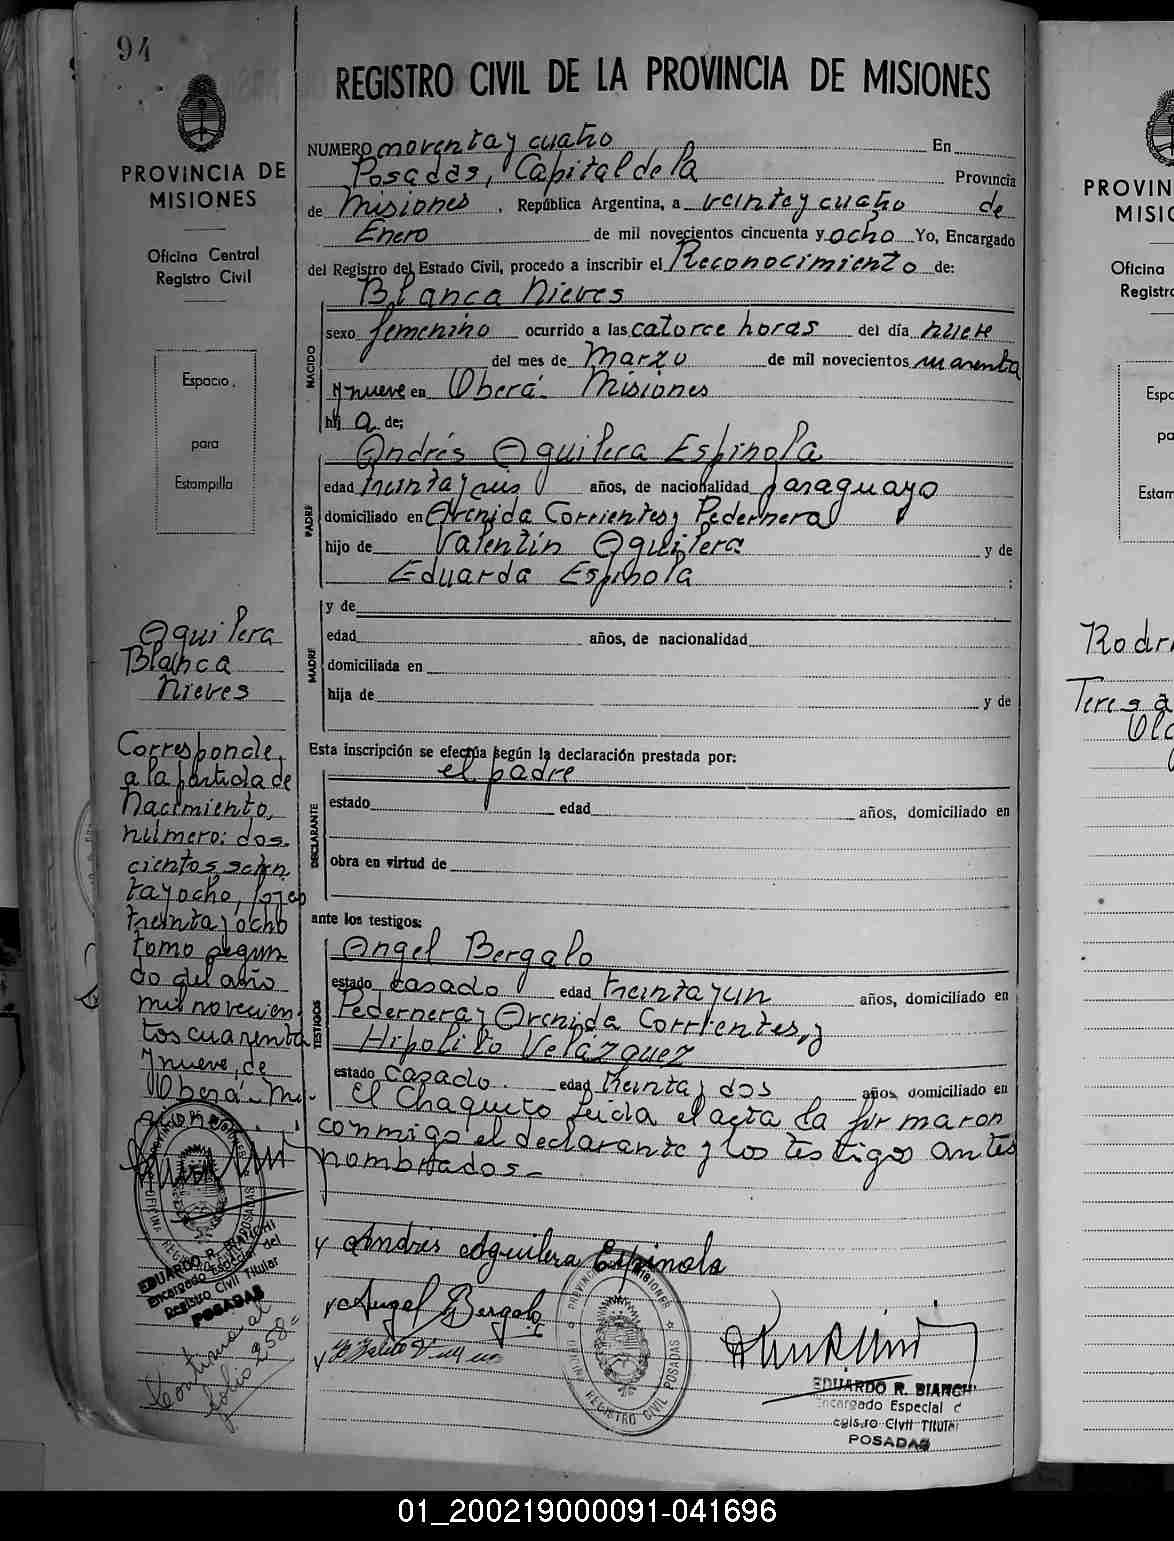 94
PROVINCIA DE
MISIONES
Oficina Central
Registro Civil
Espacio
para
Estampilla
Aguilera
Blanca
Nieves
Corresponde,
a la partida de
Nacimiento,
número: dos-
cientos seten
ta y ocho, folio
treinta y ocho
tomo segun
do del año
mil novecien
tos cuarenta
y nueve, de
Oberá - Mi-
siones.
EDUARDO R. BIANCHI
Encargado Especial del
Registro Civil Titular
POSADAS
Continua al
folio 258
REGISTRO CIVIL DE LA PROVINCIA DE MISIONES
NUMERO noventa y cuatro En
Posadas, Capital de la Provincia
de Misiones, República Argentina, a veinte y cuatro de
Enero de mil novecientos cincuenta y ocho Yo, Encargado
del Registro del Estado Civil, procedo a inscribir el Reconocimiento de:
Blanca Nieves
NACIDO
sexo femenino ocurrido a las catorce horas del día nueve
del mes de Marzo de mil novecientos cuarenta
y nueve en Oberá - Misiones
hij a de;
Andrés Aguilera Espinola
PADRE
edad treinta y seis años, de nacionalidad paraguayo
domiciliado en Avenida Corrientes y Pedernera
hijo de Valentín Aguilera y de
Eduarda Espinola ;
MADRE
y de
edad años, de nacionalidad
domiciliada en
hija de y de
Esta inscripción se efectúa según la declaración prestada por:
el padre
DECLARANTE
estado edad años, domiciliado en
obra en virtud de
ante los testigos:
TESTIGOS
Angel Bergalo
estado casado edad treinta y un años, domiciliado en
Pedernera y Avenida Corrientes, y
Hipolito Velázquez
estado casado. edad treinta y dos años, domiciliado en
El Chaquito leida el acta la firmaron
conmigo el declarante y los testigos antes
nombrados -
Andrés Aguilera Espinola
Angel Bergalo
PROVINCIA DE MISIONES
OFICINA REGISTRO CIVIL POSADAS
EDUARDO R. BIANCHI
Encargado Especial d
egistro Civil Titular
POSADAS
PROVIN
MISIO
Oficina
Registro
Espa
pa
Estam
Rodri
Teresa
01_200219000091-041696